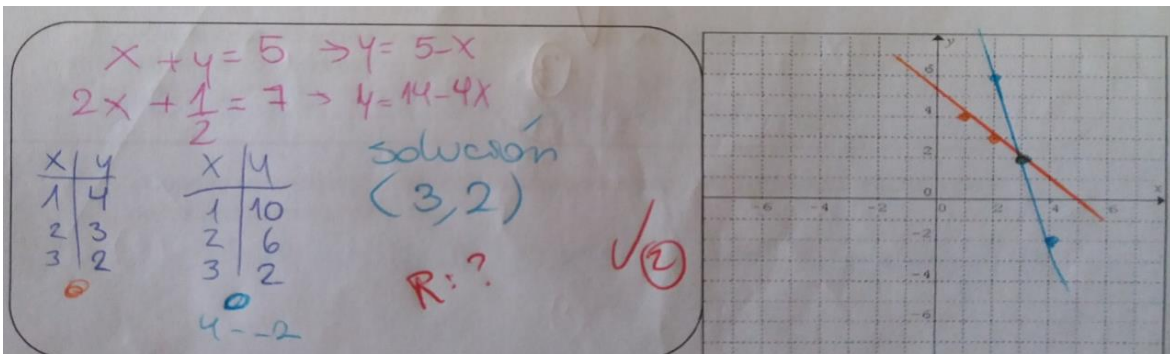 x + y = 5 → y = 5-x
2x + 1/2 = 7 → y = 14-4x
x | y
1 | 4
2 | 3
3 | 2
x | y
1 | 10
2 | 6
3 | 2
4 - -2
solución
(3,2)
R: ?
✓ 2
y
6
4
2
0
-2
-4
-6
-6 -4 -2 0 2 4 6 x